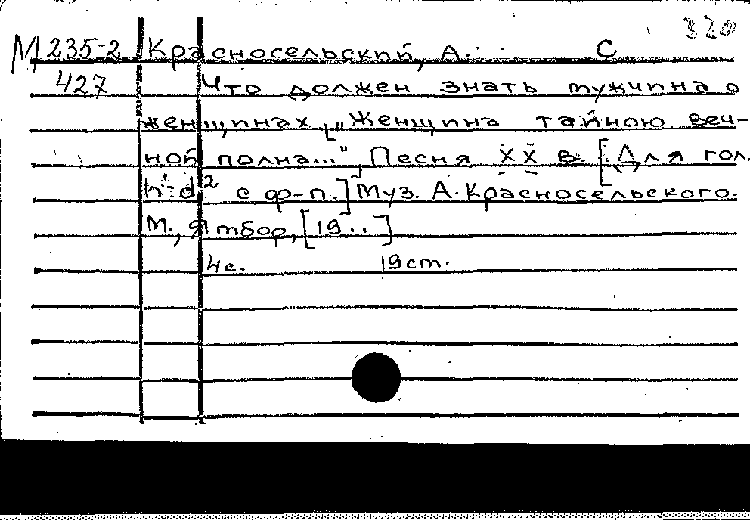 320
М 235-2 Красносельский, А. С
427 Что должен знать мужчина о
женщинах ["Женщина тайною веч-
ной полна..."] Песня XX в. [Для гол.
h-d² с ф-п.] Муз. А. Красносельского.
М., Ямбор, [19..]
4с. 19 ст.